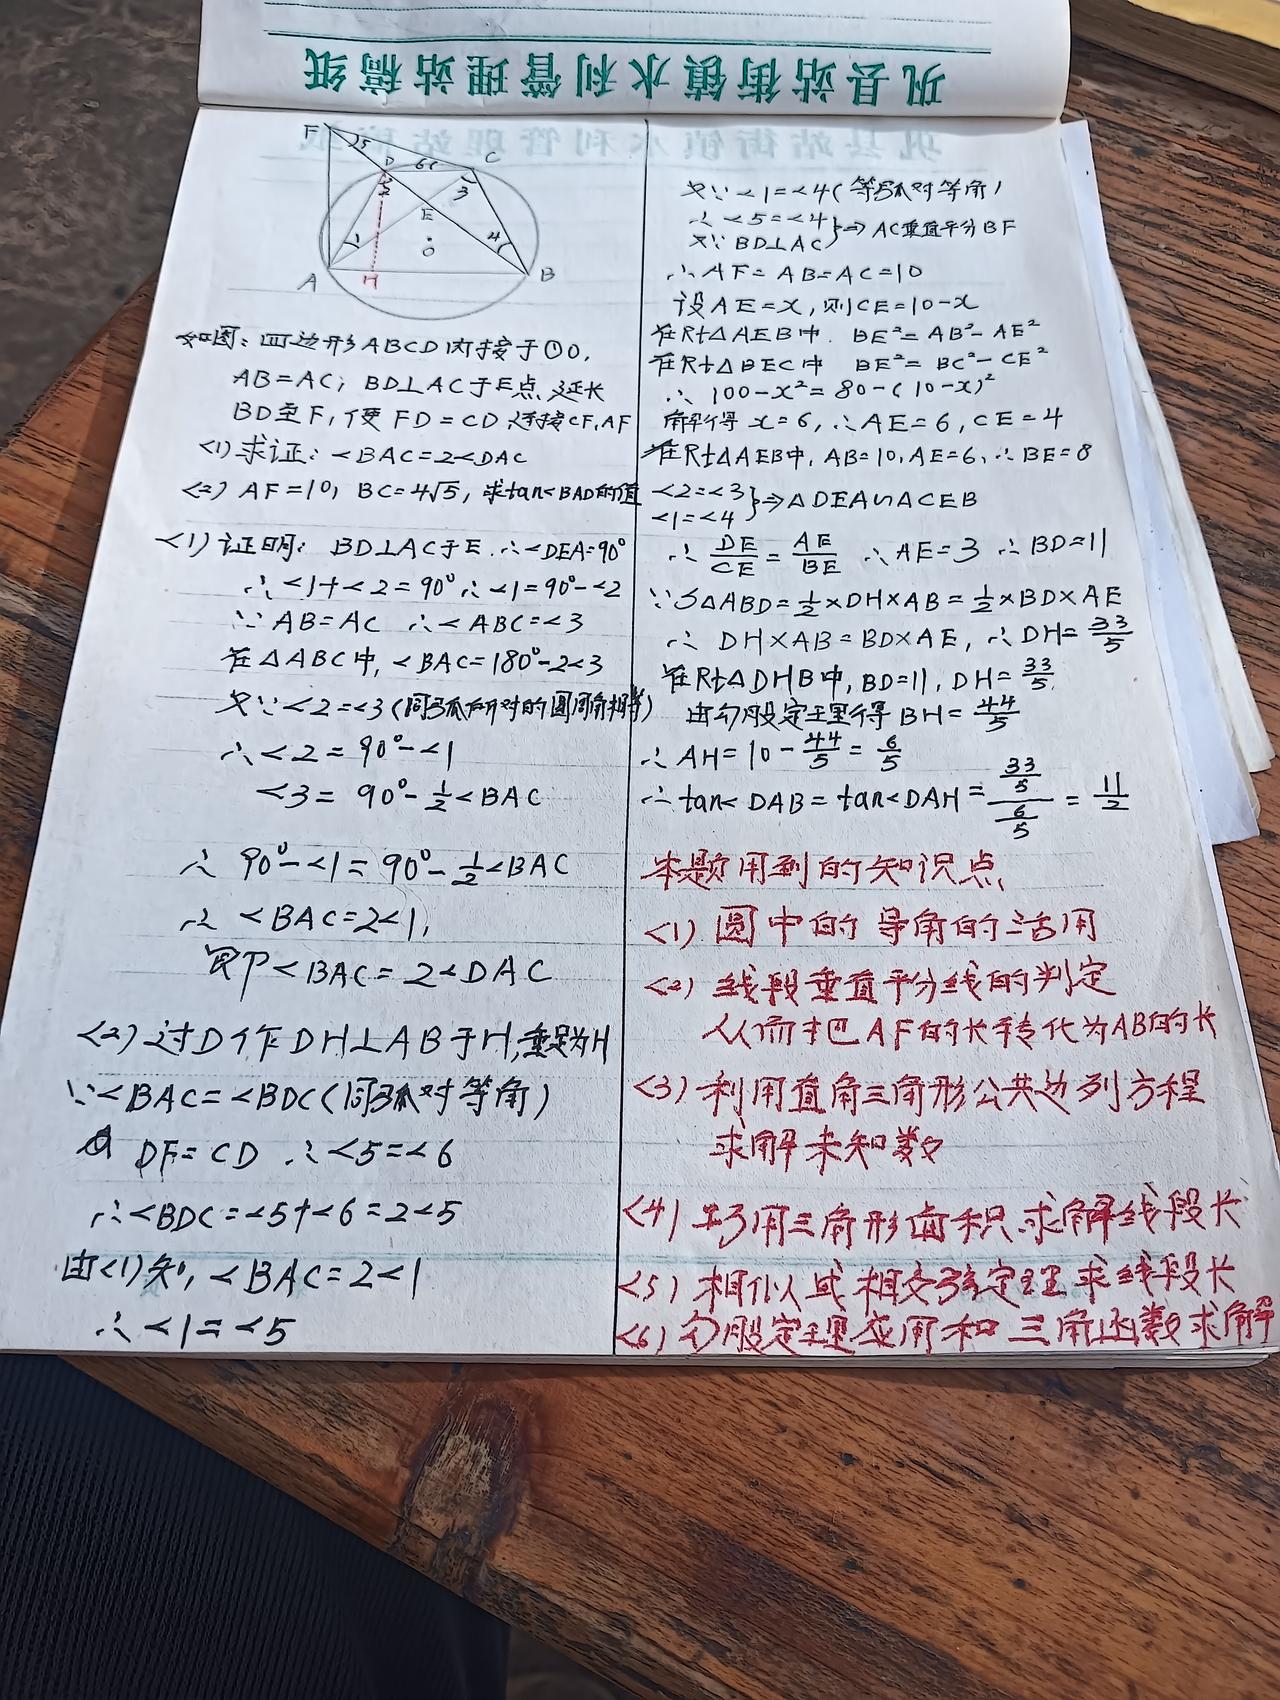 巩县站街镇水利管理站稿纸
F
5
D
6
C
2
3
E
1
4
O
A
H
B
如图:四边形ABCD内接于⊙O,
AB=AC,BD⊥AC于E点,延长
BD至F,使FD=CD,连接CF,AF
<1>求证:∠BAC=2∠DAC
<2>AF=10,BC=4√5,求tan∠BAD的值
<1>证明:BD⊥AC于E.∴∠DEA=90°
∴∠1+∠2=90°∴∠1=90°-∠2
∵AB=AC ∴∠ABC=∠3
在△ABC中,∠BAC=180°-2∠3
又∵∠2=∠3(同弧所对的圆周角相等)
∴∠2=90°-∠1
∠3=90°-½∠BAC
∴90°-∠1=90°-½∠BAC
∴∠BAC=2∠1,
即∠BAC=2∠DAC
<2>过D作DH⊥AB于H,垂足为H
∵∠BAC=∠BDC(同弧对等角)
DF=CD ∴∠5=∠6
∴∠BDC=∠5+∠6=2∠5
由<1>知,∠BAC=2∠1
∴∠1=∠5
又∵∠1=∠4(等弧对等角)
∴∠5=∠4
又∵BD⊥AC}⇒AC垂直平分BF
∴AF=AB=AC=10
设AE=x,则CE=10-x
在Rt△AEB中.BE²=AB²-AE²
在Rt△BEC中 BE²=BC²-CE²
∴100-x²=80-(10-x)²
解得x=6,∴AE=6,CE=4
在Rt△AEB中,AB=10,AE=6,∴BE=8
∠2=∠3
∠1=∠4}⇒△DEA∽△CEB
∴DE/CE=AE/BE ∴AE=3 ∴BD=11
∵S△ABD=½×DH×AB=½×BD×AE
∴DH×AB=BD×AE,∴DH=33/5
在Rt△DHB中,BD=11,DH=33/5
由勾股定理得BH=44/5
∴AH=10-44/5=6/5
∴tan∠DAB=tan∠DAH=(33/5)/(6/5)=11/2
本题用到的知识点
<1>圆中的导角的活用
<2>线段垂直平分线的判定
从而把AF的长转化为AB的长
<3>利用直角三角形公共边列方程
求解未知数
<4>巧用三角形面积求解线段长
<5>相似或相交弦定理求线段长
<6>勾股定理应用和三角函数求解